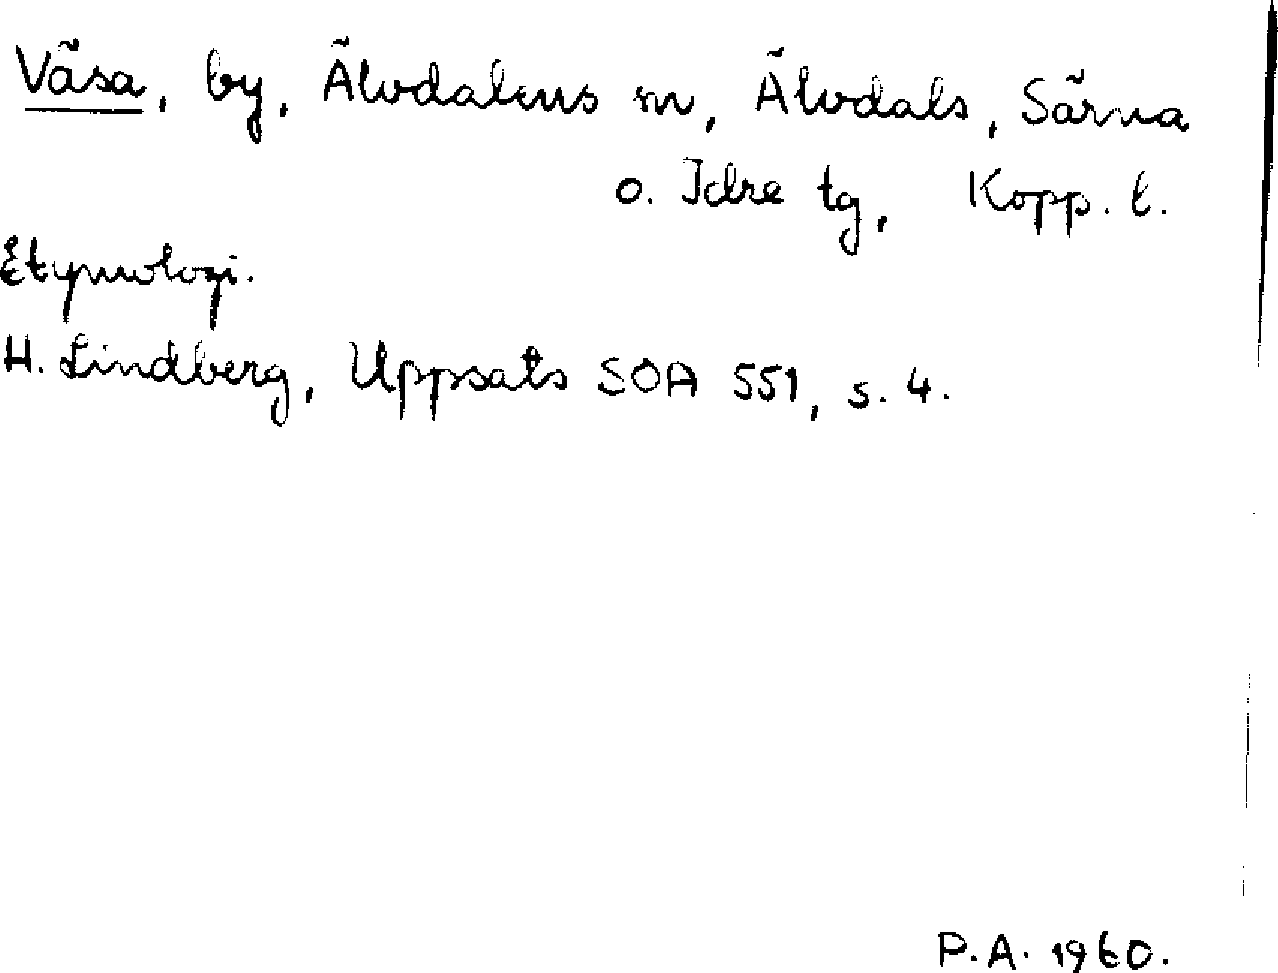 Väsa, by, Älvdalens sn, Älvdals, Särna
o. Idre tg, Kopp. l.
Etymologi.
H. Lindberg, Uppsats SOA 551, s. 4.
P.A. 1960.